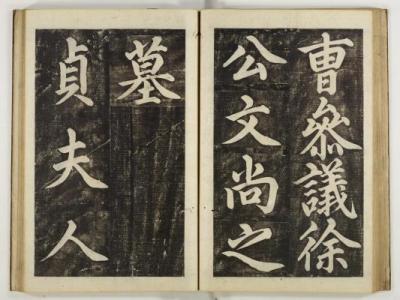 曹參議徐
公文尚之
墓
貞夫人